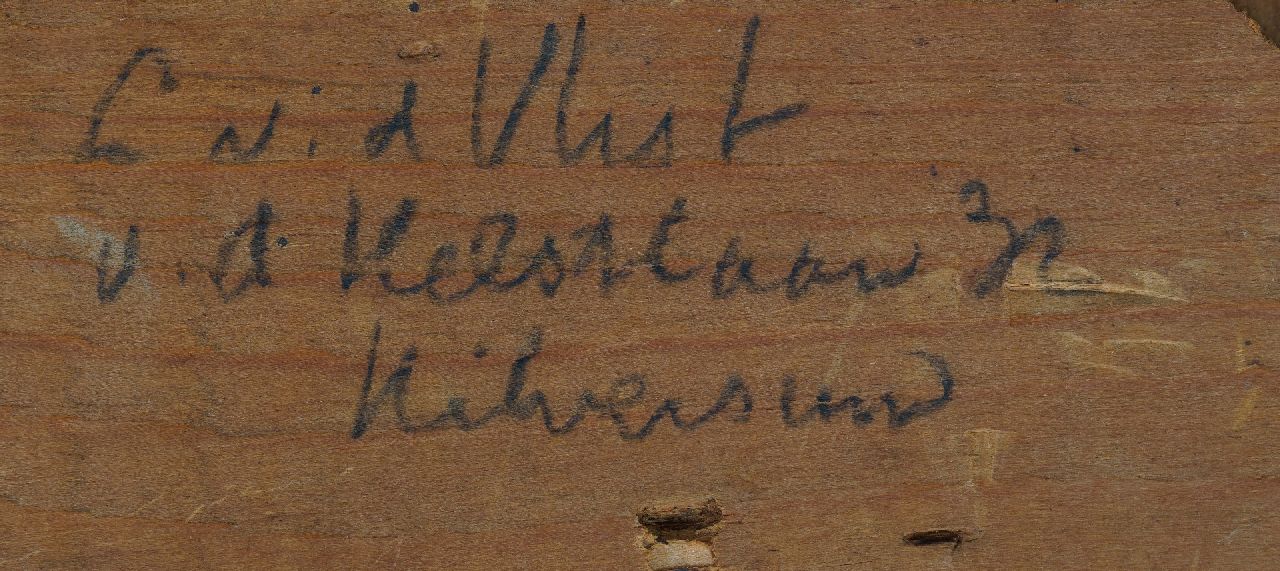 L v.d Vlist
v.d Helstlaan
Hilversum